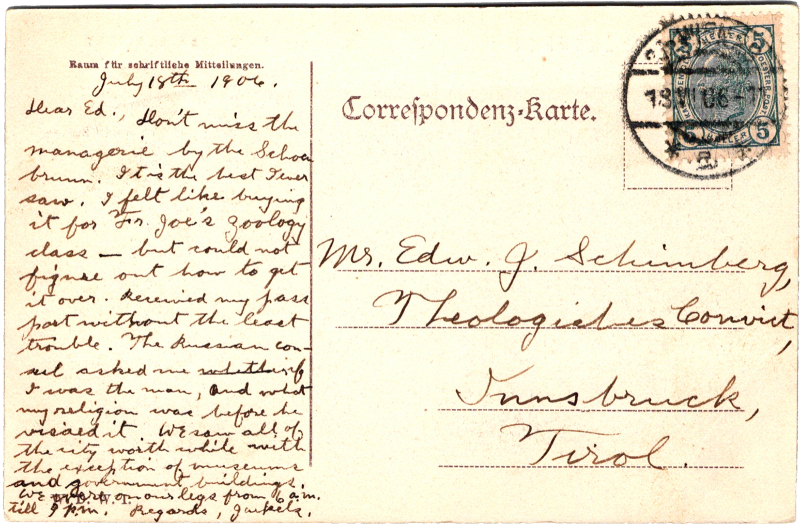 Raum für schriftliche Mitteilungen.
July 18th 1906.
Dear Ed., Don't miss the
managerie by the Schoen
brunn. It is the best I ever
saw. I felt like buying
it for Fr. Joe's zoology
class — but could not
figure out how to get
it over. Received my pass
port without the least
trouble. The Russian con-
sul asked me if
I was the man, and what
my religion was before he
visaed it. We saw all of
the city worth while with
the exception of museums
and government buildings.
We were on our legs from 6 a.m.
till 9 p.m. Regards,
Correspondenz-Karte.
5 5
5 5
18 VII 06
Mr. Edw. J. Schimberg,
Theologisches Convict,
Innsbruck,
Tirol.